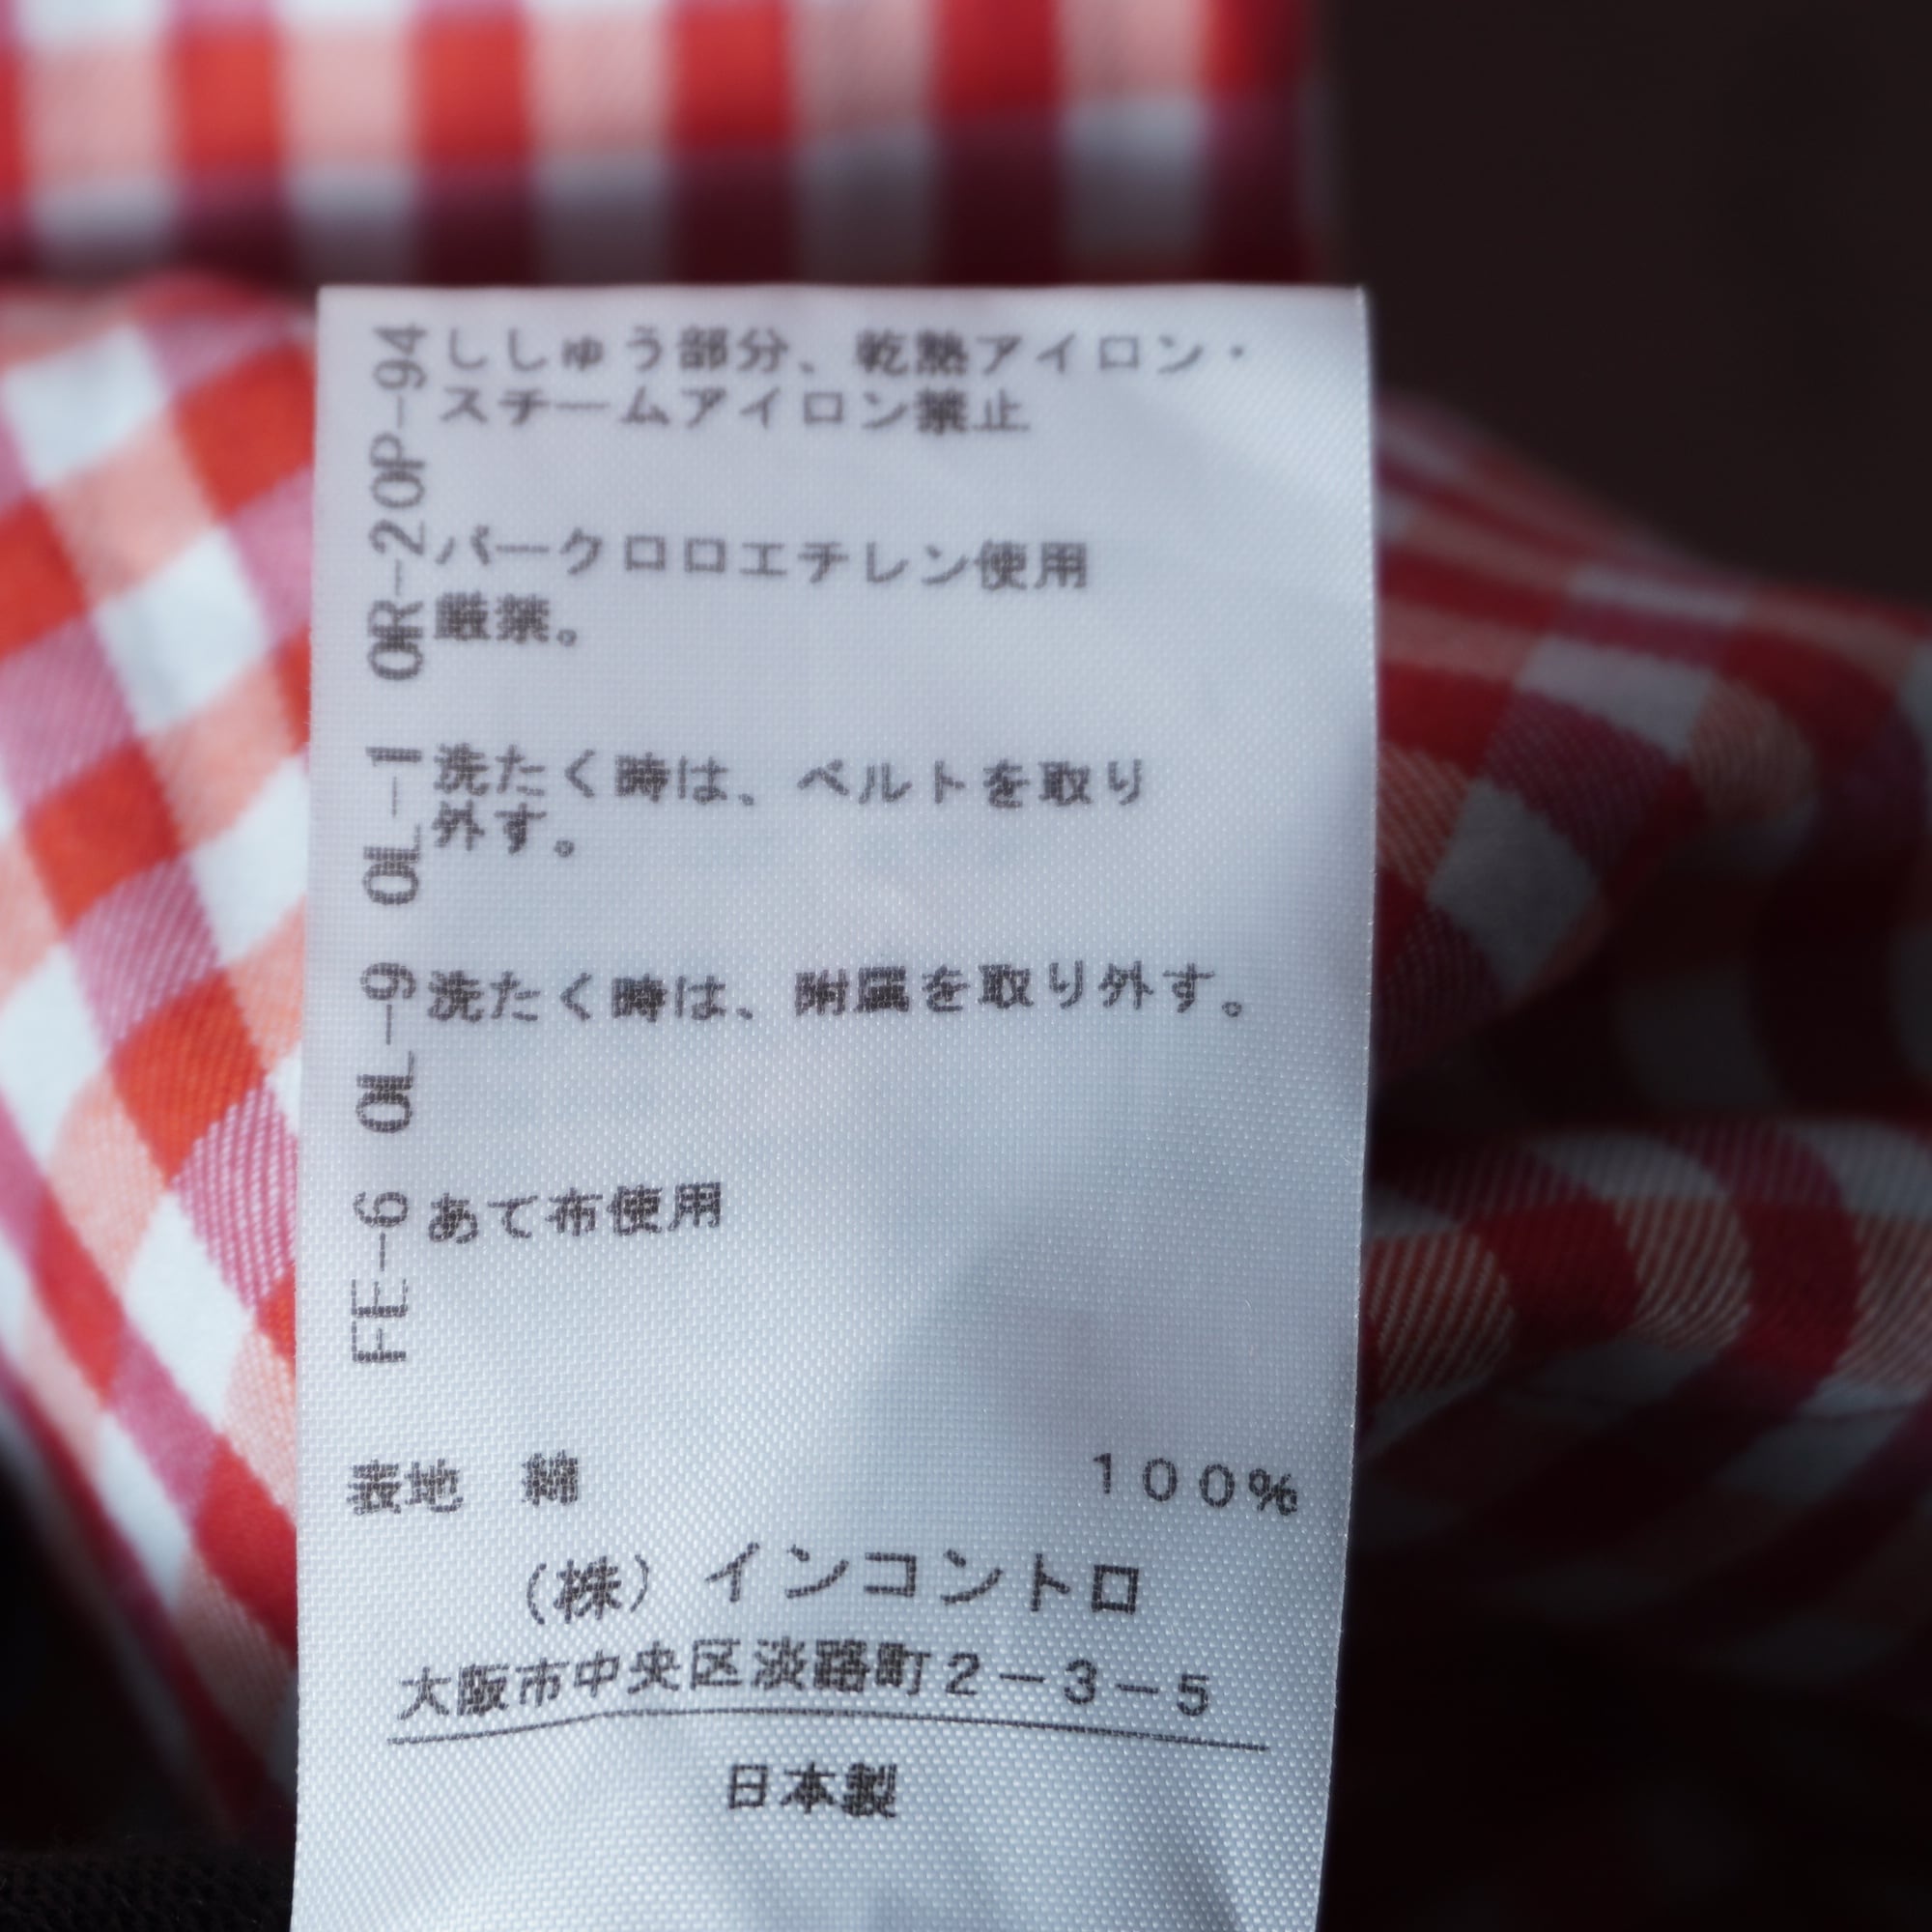 OR-20P-94
ししゅう部分、乾熱アイロン・
スチームアイロン禁止
パークロロエチレン使用
厳禁。
OL-1
洗たく時は、ベルトを取り
外す。
OL-9
洗たく時は、附属を取り外す。
FE-6
あて布使用
表地 綿 100%
(株)インコントロ
大阪市中央区淡路町2-3-5
日本製